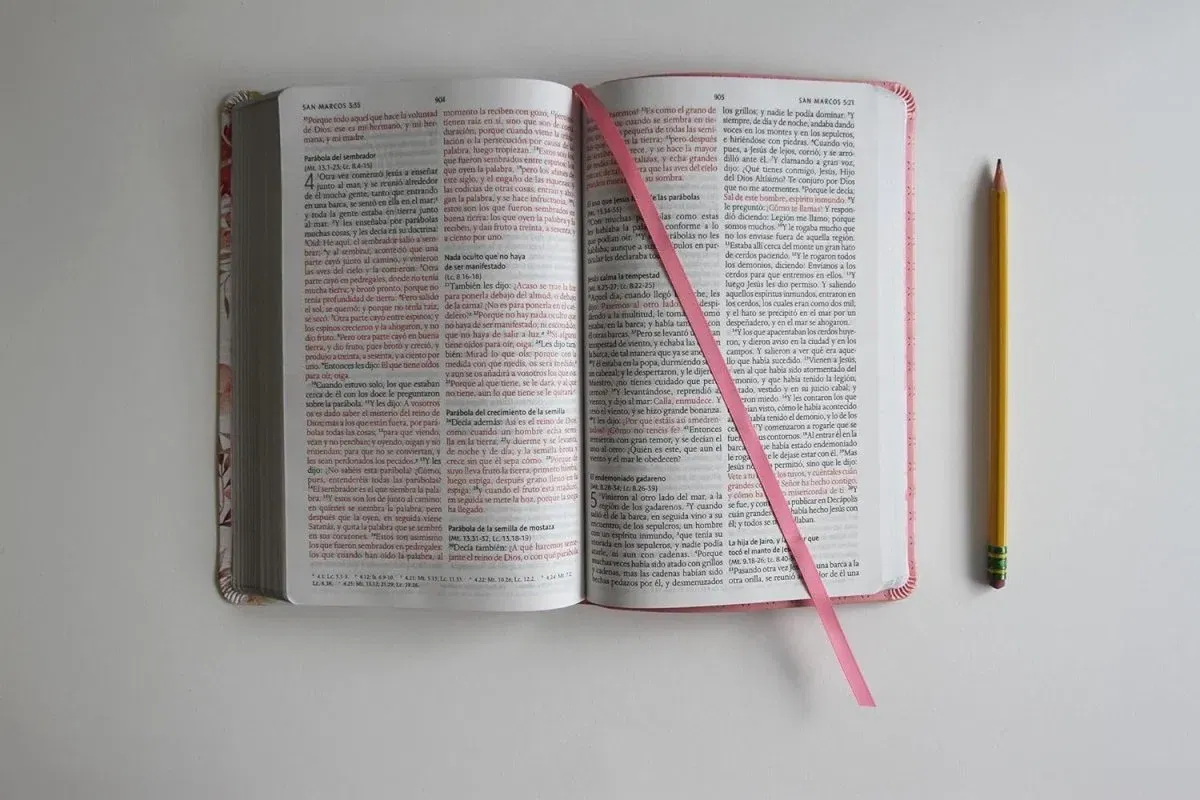 SAN MARCOS 3:35
904
Porque todo aquel que hace la voluntad
de Dios, ese es mi hermano, y mi her-
mana, y mi madre.
Parábola del sembrador
(Mt. 13.1-23; Lc. 8.4-15)
4 Otra vez comenzó Jesús a enseñar
junto al mar, y se reunió alrededor
de él mucha gente, tanto que entrando
en una barca, se sentó en ella en el mar;
y toda la gente estaba en tierra junto
al mar. Y les enseñaba por parábolas
muchas cosas, y les decía en su doctrina:
Oíd: He aquí, el sembrador salió a sem-
brar; y al sembrar, aconteció que una
parte cayó junto al camino, y vinieron
las aves del cielo y la comieron. Otra
parte cayó en pedregales, donde no tenía
mucha tierra; y brotó pronto, porque no
tenía profundidad de tierra. Pero salido
el sol, se quemó; y porque no tenía raíz,
se secó. Otra parte cayó entre espinos; y
los espinos crecieron y la ahogaron, y no
dio fruto. Pero otra parte cayó en buena
tierra, y dio fruto, pues brotó y creció, y
produjo a treinta, a sesenta, y a ciento por
uno. Entonces les dijo: El que tiene oídos
para oír, oiga.
Cuando estuvo solo, los que estaban
cerca de él con los doce le preguntaron
sobre la parábola. Y les dijo: A vosotros
os es dado saber el misterio del reino de
Dios; mas a los que están fuera, por pará-
bolas todas las cosas; para que viendo,
vean y no perciban; y oyendo, oigan y no
entiendan; para que no se conviertan, y
les sean perdonados los pecados. Y les
dijo: ¿No sabéis esta parábola? ¿Cómo,
pues, entenderéis todas las parábolas?
El sembrador es el que siembra la pala-
bra. Y estos son los de junto al camino:
en quienes se siembra la palabra, pero
después que la oyen, en seguida viene
Satanás, y quita la palabra que se sembró
en sus corazones. Estos son asimismo
los que fueron sembrados en pedregales:
los que cuando han oído la palabra, al
momento la reciben con gozo;
tienen raíz en sí, sino que son de corta
duración, porque cuando viene la
o la persecución por causa de la
palabra, luego tropiezan. Estos son los
que fueron sembrados entre espinos:
los que oyen la palabra, pero los afanes de
este siglo, y el engaño de las riquezas, y
las codicias de otras cosas, entran y aho-
gan la palabra, y se hace infructuosa. Y
estos son los que fueron sembrados en
buena tierra: los que oyen la palabra y la
reciben, y dan fruto a treinta, a sesenta, y
a ciento por uno.
Nada oculto que no haya
de ser manifestado
(Lc. 8.16-18)
También les dijo: ¿Acaso se trae la luz
para ponerla debajo del almud, o debajo
de la cama? ¿No es para ponerla en el can-
delero? Porque no hay nada oculto que
no haya de ser manifestado; ni escondido,
que no haya de salir a luz. Si alguno
tiene oídos para oír, oiga. Les dijo tam-
bién: Mirad lo que oís; porque con la
medida con que medís, os será medido,
y aun se os añadirá a vosotros los que oís.
Porque al que tiene, se le dará; y al que
no tiene, aun lo que tiene se le quitará.
Parábola del crecimiento de la semilla
Decía además: Así es el reino de Dios,
como cuando un hombre echa semi-
lla en la tierra; y duerme y se levanta,
de noche y de día, y la semilla brota y
crece sin que él sepa cómo. Porque de
suyo lleva fruto la tierra, primero hierba,
luego espiga, después grano lleno en la
espiga; y cuando el fruto está maduro,
en seguida se mete la hoz, porque la siega
ha llegado.
Parábola de la semilla de mostaza
(Mt. 13.31-32; Lc. 13.18-19)
Decía también: ¿A qué haremos seme-
jante el reino de Dios, o con qué parábola
905
SAN MARCOS 5:21
Es como el grano de
cuando se siembra en tie-
pequeña de todas las semi-
pero después
crece, y se hace la mayor
hortalizas, y echa grandes
de tal manera que las aves del cielo
pueden morar bajo su sombra.
El uso que Jesús de las parábolas
(Mt. 13.34-35)
Con muchas parábolas como estas
les hablaba la palabra, conforme a lo
que podían oír. Y sin parábolas no les
hablaba; aunque a sus discípulos en par-
ticular les declaraba todo.
Jesús calma la tempestad
(Mt. 8.23-27; Lc. 8.22-25)
Aquel día, cuando llegó la noche, les
dijo: Pasemos al otro lado. Y despi-
diendo a la multitud, le tomaron como
estaba, en la barca; y había también con
él otras barcas. Pero se levantó una gran
tempestad de viento, y echaba las olas en
la barca, de tal manera que ya se anegaba.
Y él estaba en la popa, durmiendo sobre
un cabezal; y le despertaron, y le dijeron:
Maestro, ¿no tienes cuidado que pere-
cemos? Y levantándose, reprendió al
viento, y dijo al mar: Calla, enmudece. Y
cesó el viento, y se hizo grande bonanza.
Y les dijo: ¿Por qué estáis así amedren-
tados? ¿Cómo no tenéis fe? Entonces
temieron con gran temor, y se decían el
uno al otro: ¿Quién es este, que aun el
viento y el mar le obedecen?
El endemoniado gadareno
(Mt. 8.28-34; Lc. 8.26-39)
5 Vinieron al otro lado del mar, a la
región de los gadarenos. Y cuando
salió él de la barca, en seguida vino a su
encuentro, de los sepulcros, un hombre
con un espíritu inmundo, que tenía su
morada en los sepulcros, y nadie podía
atarle, ni aun con cadenas. Porque
muchas veces había sido atado con grillos
y cadenas, mas las cadenas habían sido
hechas pedazos por él, y desmenuzados
los grillos; y nadie le podía dominar. Y
siempre, de día y de noche, andaba dando
voces en los montes y en los sepulcros,
e hiriéndose con piedras. Cuando vio,
pues, a Jesús de lejos, corrió, y se arro-
dilló ante él. Y clamando a gran voz,
dijo: ¿Qué tienes conmigo, Jesús, Hijo
del Dios Altísimo? Te conjuro por Dios
que no me atormentes. Porque le decía:
Sal de este hombre, espíritu inmundo. Y
le preguntó: ¿Cómo te llamas? Y respon-
dió diciendo: Legión me llamo; porque
somos muchos. Y le rogaba mucho que
no los enviase fuera de aquella región.
Estaba allí cerca del monte un gran hato
de cerdos paciendo. Y le rogaron todos
los demonios, diciendo: Envíanos a los
cerdos para que entremos en ellos. Y
luego Jesús les dio permiso. Y saliendo
aquellos espíritus inmundos, entraron en
los cerdos, los cuales eran como dos mil;
y el hato se precipitó en el mar por un
despeñadero, y en el mar se ahogaron.
Y los que apacentaban los cerdos huye-
ron, y dieron aviso en la ciudad y en los
campos. Y salieron a ver qué era aque-
llo que había sucedido. Vienen a Jesús,
y ven al que había sido atormentado del
demonio, y que había tenido la legión,
sentado, vestido y en su juicio cabal; y
miedo. Y les contaron los que
habían visto, cómo le había acontecido
al que había tenido el demonio, y lo de los
cerdos. Y comenzaron a rogarle que se
fuera de sus contornos. Al entrar él en la
barca, el que había estado endemoniado
le rogaba que le dejase estar con él. Mas
Jesús no se lo permitió, sino que le dijo:
Vete a tu casa, a los tuyos, y cuéntales cuán
grandes cosas el Señor ha hecho contigo,
y cómo ha tenido misericordia de ti. Y
se fue, y comenzó a publicar en Decápolis
cuán grandes cosas había hecho Jesús con
él; y todos se maravillaban.
La hija de Jairo, y la mujer que
tocó el manto de Jesús
(Mt. 9.18-26; Lc. 8.40-56)
Pasando otra vez Jesús en una barca a la
otra orilla, se reunió alrededor de él una